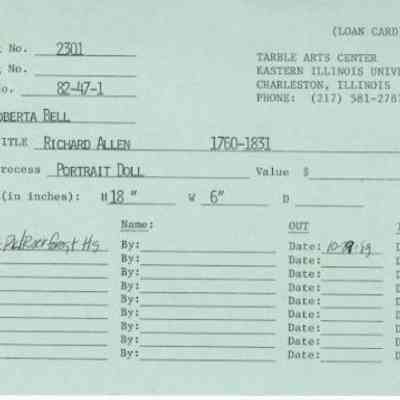 (LOAN CARD)
No. 2301
No.
o. 82-47-1
TARBLE ARTS CENTER
EASTERN ILLINOIS UNIV
CHARLESTON, ILLINOIS
PHONE: (217) 581-278
OBERTA BELL
TITLE RICHARD ALLEN 1760-1831
rocess PORTRAIT DOLL Value $
(in inches): H 18 " W 6" D
Name: OUT
By: Date:
By: Date:
By: Date:
By: Date:
By: Date:
By: Date:
By: Date:
By: Date:
By: Date: